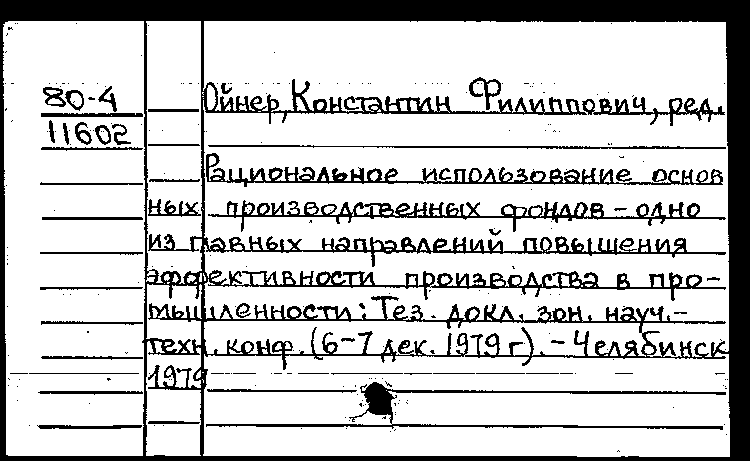 80-4 Ойнер, Константин Филиппович, ред.
11602
Рациональное использование основ
ных производственных фондов – одно
из главных направлений повышения
эффективности производства в про-
мышленности: Тез. докл. зон. науч.-
техн. конф. (6-7 дек. 1979 г). - Челябинск
1979